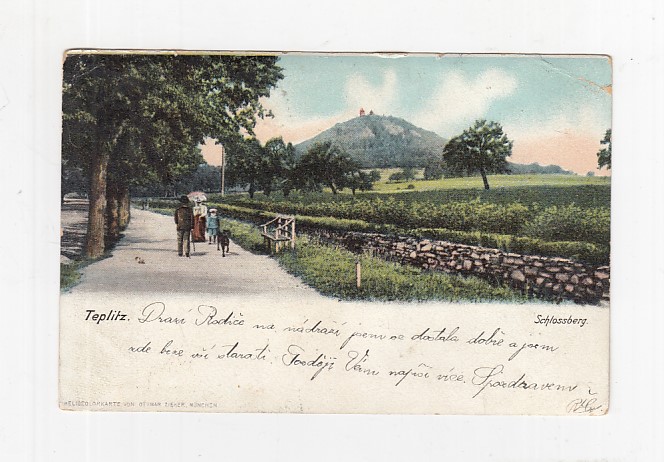 Teplitz.
Schlossberg.
Drazí Rodiče na nádraží jsem se dostala dobře a jsem
zde beze vší starati. Později Vám napíši více. Spozdravem
HELIOCOLORKARTE VON OTTMAR ZIEHER, MÜNCHEN